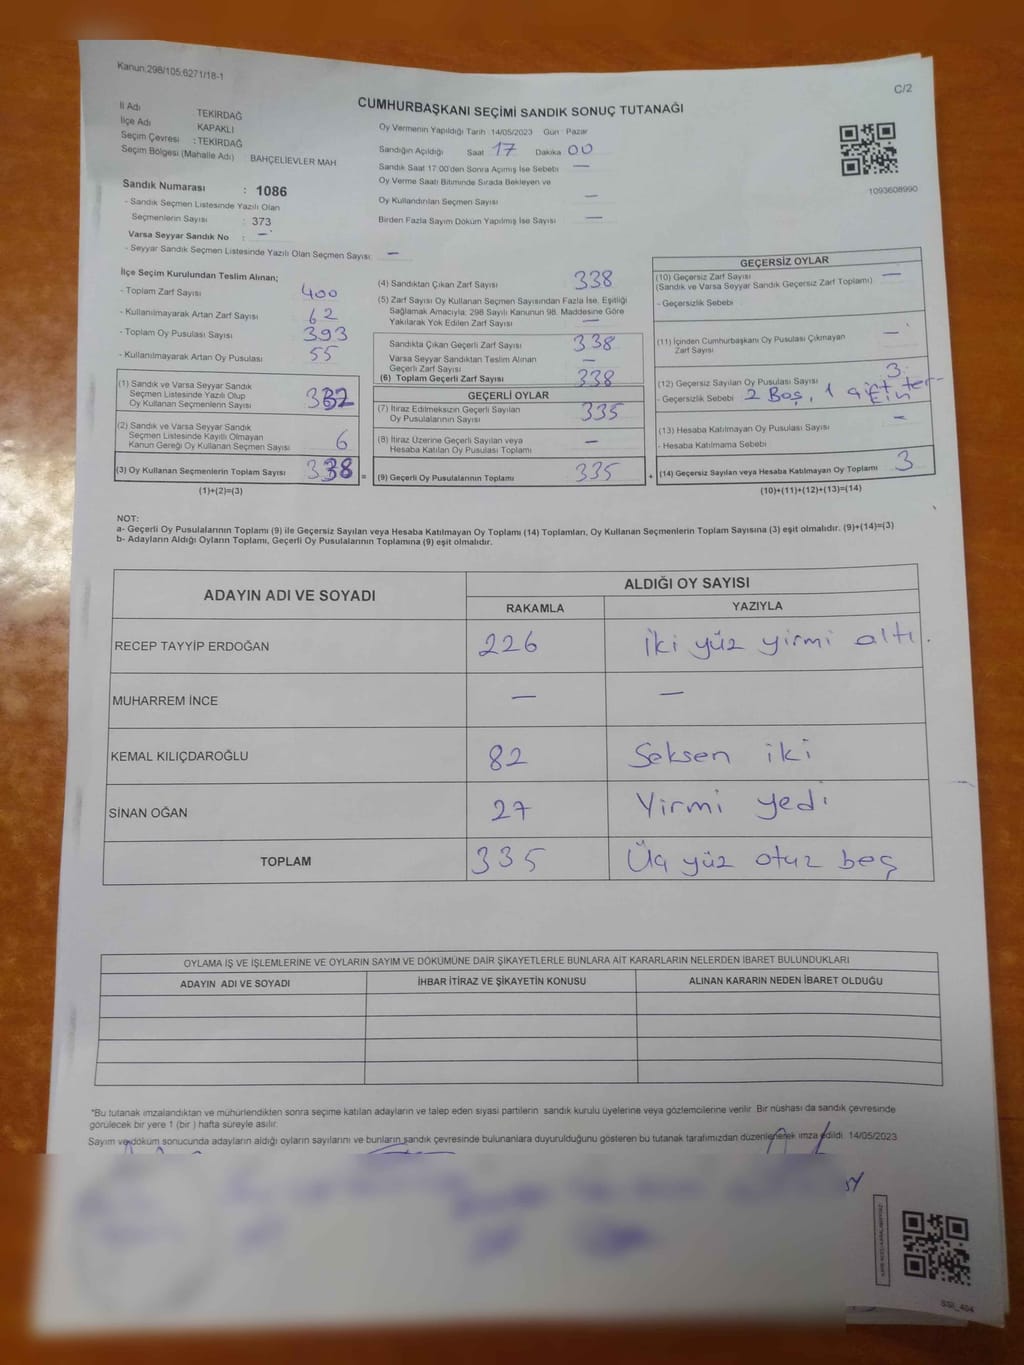 Kanun:298/105.6271/18-1
C/2
CUMHURBAŞKANI SEÇİMİ SANDIK SONUÇ TUTANAĞI
İl Adı TEKİRDAĞ
İlçe Adı KAPAKLI
Seçim Çevresi : TEKİRDAĞ
Seçim Bölgesi (Mahalle Adı) BAHÇELİEVLER MAH
Sandık Numarası : 1086
- Sandık Seçmen Listesinde Yazılı Olan
Seçmenlerin Sayısı : 373
Varsa Seyyar Sandık No : –
- Seyyar Sandık Seçmen Listesinde Yazılı Olan Seçmen Sayısı: –
Oy Vermenin Yapıldığı Tarih : 14/05/2023 Gün : Pazar
Sandığın Açıldığı Saat 17 Dakika 00
Sandık Saat 17:00'den Sonra Açımış İse Sebebi –
Oy Verme Saati Bitiminde Sırada Bekleyen ve
Oy Kullandırılan Seçmen Sayısı –
Birden Fazla Sayım Döküm Yapılmış İse Sayısı –
1093608990
İlçe Seçim Kurulundan Teslim Alınan;
- Toplam Zarf Sayısı 400
- Kullanılmayarak Artan Zarf Sayısı 62
- Toplam Oy Pusulası Sayısı 393
- Kullanılmayarak Artan Oy Pusulası 55
(1) Sandık ve Varsa Seyyar Sandık
Seçmen Listesinde Yazılı Olup
Oy Kullanan Seçmenlerin Sayısı 332
(2) Sandık ve Varsa Seyyar Sandık
Seçmen Listesinde Kayıtlı Olmayan
Kanun Gereği Oy Kullanan Seçmen Sayısı 6
(3) Oy Kullanan Seçmenlerin Toplam Sayısı 338 =
(1)+(2)=(3)
(4) Sandıktan Çıkan Zarf Sayısı 338
(5) Zarf Sayısı Oy Kullanan Seçmen Sayısından Fazla İse, Eşitliği
Sağlamak Amacıyla; 298 Sayılı Kanunun 98. Maddesine Göre
Yakılarak Yok Edilen Zarf Sayısı –
Sandıkta Çıkan Geçerli Zarf Sayısı 338
Varsa Seyyar Sandıktan Teslim Alınan
Geçerli Zarf Sayısı –
(6) Toplam Geçerli Zarf Sayısı 338
GEÇERLİ OYLAR
(7) İtiraz Edilmeksizin Geçerli Sayılan
Oy Pusulalarının Sayısı 335
(8) İtiraz Üzerine Geçerli Sayılan veya
Hesaba Katılan Oy Pusulası Toplamı –
(9) Geçerli Oy Pusulalarının Toplamı 335 +
GEÇERSİZ OYLAR
(10) Geçersiz Zarf Sayısı –
(Sandık ve Varsa Seyyar Sandık Geçersiz Zarf Toplamı)
- Geçersizlik Sebebi :
(11) İçinden Cumhurbaşkanı Oy Pusulası Çıkmayan
Zarf Sayısı –
(12) Geçersiz Sayılan Oy Pusulası Sayısı 3
- Geçersizlik Sebebi : 2 Boş, 1 çift ter-
(13) Hesaba Katılmayan Oy Pusulası Sayısı –
- Hesaba Katılmama Sebebi :
(14) Geçersiz Sayılan veya Hesaba Katılmayan Oy Toplamı 3
(10)+(11)+(12)+(13)=(14)
NOT:
a- Geçerli Oy Pusulalarının Toplamı (9) ile Geçersiz Sayılan veya Hesaba Katılmayan Oy Toplamı (14) Toplamları, Oy Kullanan Seçmenlerin Toplam Sayısına (3) eşit olmalıdır. (9)+(14)=(3)
b- Adayların Aldığı Oyların Toplamı, Geçerli Oy Pusulalarının Toplamına (9) eşit olmalıdır.
ADAYIN ADI VE SOYADI ALDIĞI OY SAYISI
RAKAMLA YAZIYLA
RECEP TAYYİP ERDOĞAN 226 İki yüz yirmi altı.
MUHARREM İNCE – –
KEMAL KILIÇDAROĞLU 82 Seksen iki
SİNAN OĞAN 27 Yirmi yedi
TOPLAM 335 Üç yüz otuz beş
OYLAMA İŞ VE İŞLEMLERİNE VE OYLARIN SAYIM VE DÖKÜMÜNE DAİR ŞİKAYETLERLE BUNLARA AİT KARARLARIN NELERDEN İBARET BULUNDUKLARI
ADAYIN ADI VE SOYADI İHBAR İTİRAZ VE ŞİKAYETİN KONUSU ALINAN KARARIN NEDEN İBARET OLDUĞU
*Bu tutanak imzalandıktan ve mühürlendikten sonra seçime katılan adayların ve talep eden siyasi partilerin sandık kurulu üyelerine veya gözlemcilerine verilir. Bir nüshası da sandık çevresinde
görülecek bir yere 1 (bir) hafta süreyle asılır.
Sayım ve döküm sonucunda adayların aldığı oyların sayılarını ve bunların sandık çevresinde bulunanlara duyurulduğunu gösteren bu tutanak tarafımızdan düzenlenerek imza edildi. 14/05/2023